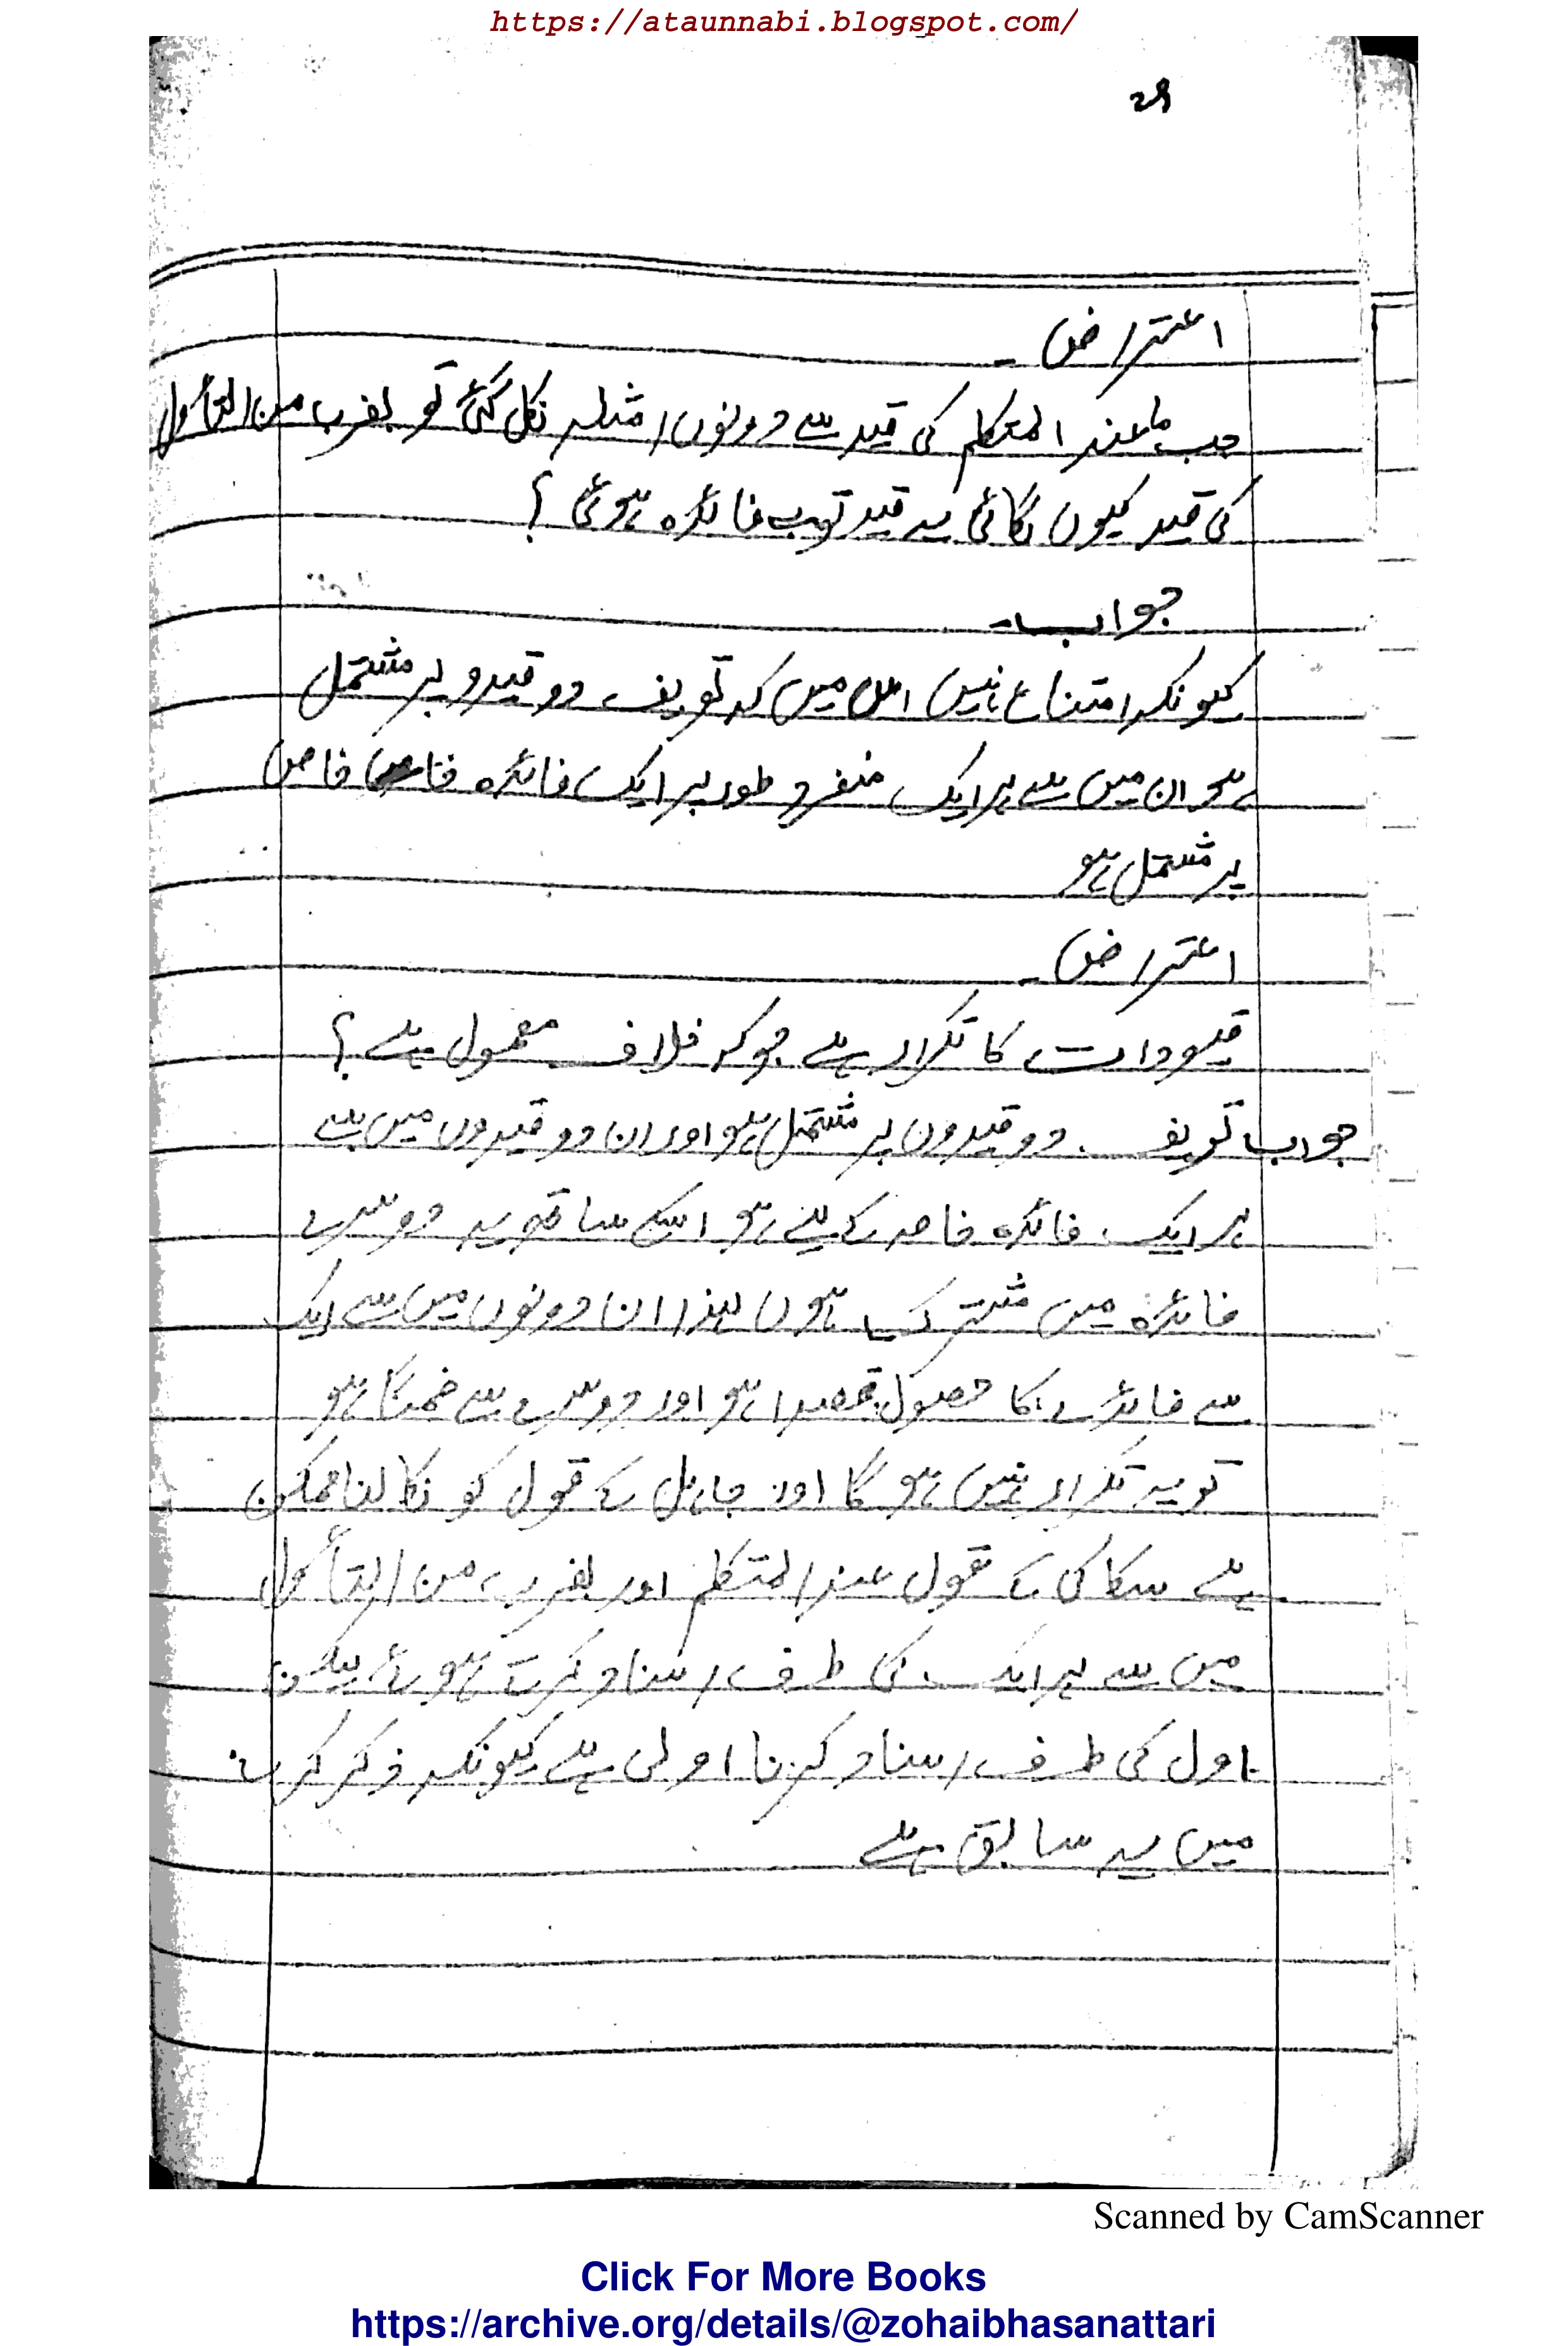 https://ataunnabi.blogspot.com/
29
اعتراض۔
جب ما عند المتکلم کی قید سے دونوں امثلہ نکل گئی تو بضرب من التأول
کی قید کیوں لگائی یہ قید تو بے فائدہ ہوئی ؟
جواب۔
کیونکہ امتناع نہیں اس میں کہ تعریف دو قیدو پر مشتمل
ہو ان میں سے ہر ایک منفرد طور پر ایک فائدہ خاص
پر مشتمل ہو
اعتراض۔
قیودات کا تکرار ہے جو کہ خلاف معمول ہے ؟
جواب تعریف دو قیدوں پر مشتمل ہو اور ان دو قیدوں میں سے
ہر ایک فائدہ خاصہ کے لیے ہو اسکے ساتھ یہ دوسرے
فائدہ میں مشترک ہوں لہذا ان دونوں میں سے ایک
سے فائدے کا حصول قصدا ہو اور دوسرے سے ضمنًا ہو
تو یہ تکرار نہیں ہو گا اور جاہل کے قول کو نکالنا ممکن
ہے سکاکی کے قول عند المتکلم اور بضرب من التأول
میں سے ہر ایک کی طرف اسناد کرتے ہوئے لیکن
اول کی طرف اسناد کرنا اولی ہے کیونکہ ذکر کرنے
میں یہ سابق ہے
Scanned by CamScanner
Click For More Books
https://archive.org/details/@zohaibhasanattari